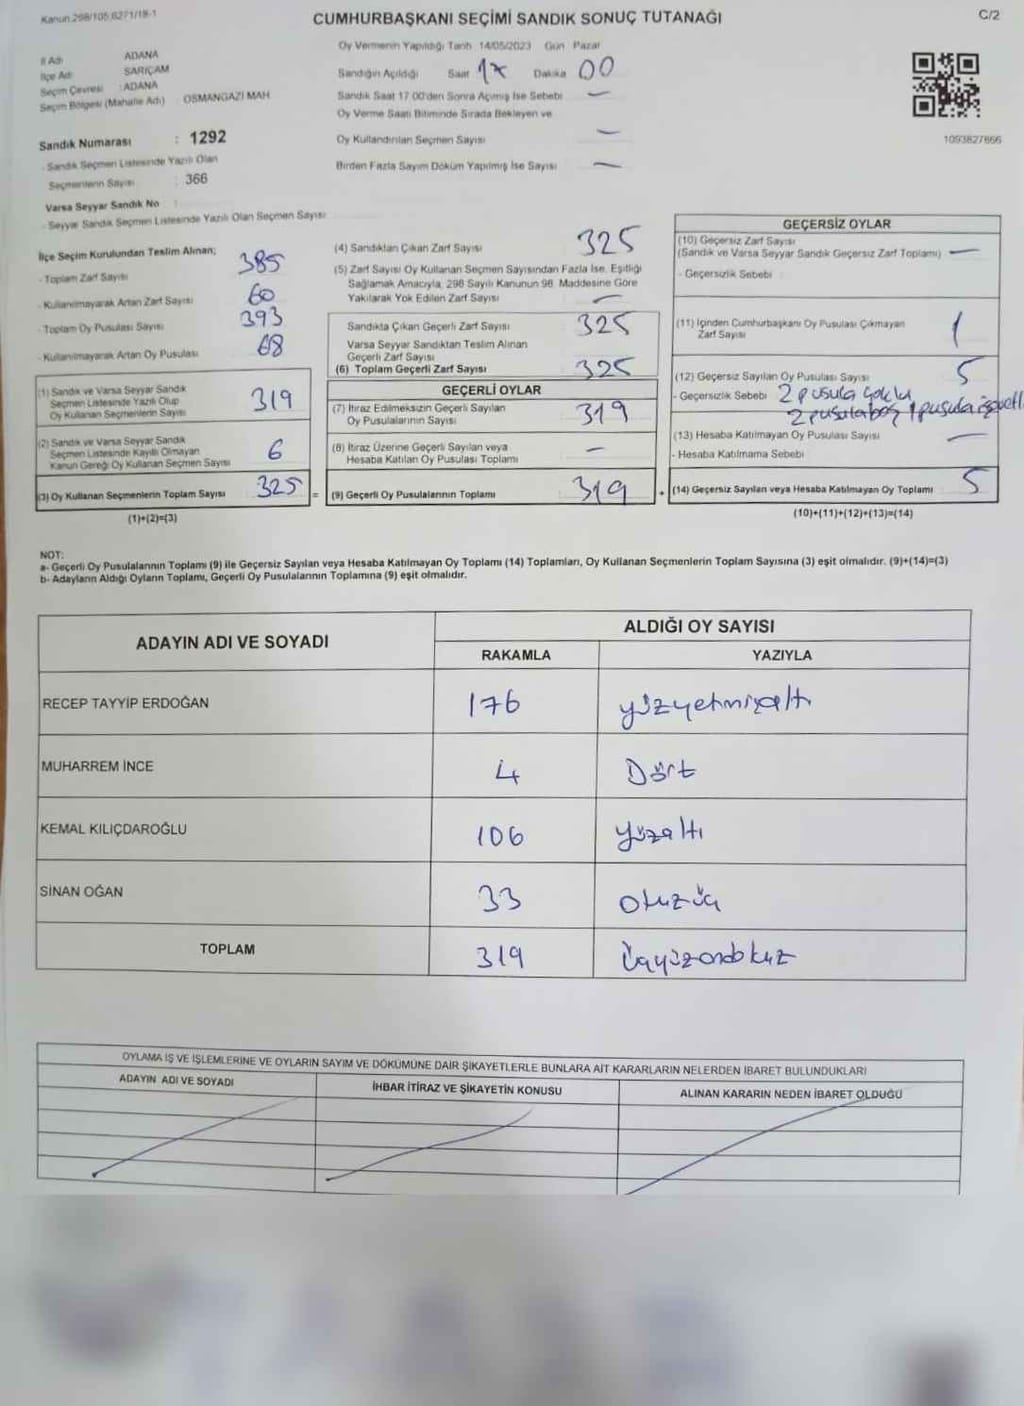 Kanun:298/105,6271/18-1
CUMHURBAŞKANI SEÇİMİ SANDIK SONUÇ TUTANAĞI
C/2
İl Adı : ADANA
İlçe Adı : SARIÇAM
Seçim Çevresi : ADANA
Seçim Bölgesi (Mahalle Adı) : OSMANGAZİ MAH
Sandık Numarası : 1292
- Sandık Seçmen Listesinde Yazılı Olan
Seçmenlerin Sayısı : 366
Varsa Seyyar Sandık No :
- Seyyar Sandık Seçmen Listesinde Yazılı Olan Seçmen Sayısı
Oy Vermenin Yapıldığı Tarih 14/05/2023 Gün Pazar
Sandığın Açıldığı Saat 17 Dakika 00
Sandık Saat 17.00'den Sonra Açılmış İse Sebebi —
Oy Verme Saati Bitiminde Sırada Bekleyen ve
Oy Kullandırılan Seçmen Sayısı —
Birden Fazla Sayım Döküm Yapılmış İse Sayısı —
1093827666
İlçe Seçim Kurulundan Teslim Alınan;
- Toplam Zarf Sayısı 385
- Kullanılmayarak Artan Zarf Sayısı 60
- Toplam Oy Pusulası Sayısı 393
- Kullanılmayarak Artan Oy Pusulası 68
(1) Sandık ve Varsa Seyyar Sandık
Seçmen Listesinde Yazılı Olup
Oy Kullanan Seçmenlerin Sayısı 319
(2) Sandık ve Varsa Seyyar Sandık
Seçmen Listesinde Kayıtlı Olmayan
Kanun Gereği Oy Kullanan Seçmen Sayısı 6
(3) Oy Kullanan Seçmenlerin Toplam Sayısı 325
(1)+(2)=(3)
(4) Sandıktan Çıkan Zarf Sayısı 325
(5) Zarf Sayısı Oy Kullanan Seçmen Sayısından Fazla İse, Eşitliği
Sağlamak Amacıyla, 298 Sayılı Kanunun 98. Maddesine Göre
Yakılarak Yok Edilen Zarf Sayısı —
Sandıkta Çıkan Geçerli Zarf Sayısı 325
Varsa Seyyar Sandıktan Teslim Alınan
Geçerli Zarf Sayısı
(6) Toplam Geçerli Zarf Sayısı 325
GEÇERLİ OYLAR
(7) İtiraz Edilmeksizin Geçerli Sayılan
Oy Pusulalarının Sayısı 319
(8) İtiraz Üzerine Geçerli Sayılan veya
Hesaba Katılan Oy Pusulası Toplamı —
= (9) Geçerli Oy Pusulalarının Toplamı 319 +
GEÇERSİZ OYLAR
(10) Geçersiz Zarf Sayısı
(Sandık ve Varsa Seyyar Sandık Geçersiz Zarf Toplamı) —
- Geçersizlik Sebebi
(11) İçinden Cumhurbaşkanı Oy Pusulası Çıkmayan
Zarf Sayısı 1
(12) Geçersiz Sayılan Oy Pusulası Sayısı 5
- Geçersizlik Sebebi 2 pusula çoklu
2 pusula boş 1 pusula
(13) Hesaba Katılmayan Oy Pusulası Sayısı —
- Hesaba Katılmama Sebebi
(14) Geçersiz Sayılan veya Hesaba Katılmayan Oy Toplamı 5
(10)+(11)+(12)+(13)=(14)
NOT:
a- Geçerli Oy Pusulalarının Toplamı (9) ile Geçersiz Sayılan veya Hesaba Katılmayan Oy Toplamı (14) Toplamları, Oy Kullanan Seçmenlerin Toplam Sayısına (3) eşit olmalıdır. (9)+(14)=(3)
b- Adayların Aldığı Oyların Toplamı, Geçerli Oy Pusulalarının Toplamına (9) eşit olmalıdır.
ADAYIN ADI VE SOYADI
ALDIĞI OY SAYISI
RAKAMLA YAZIYLA
RECEP TAYYİP ERDOĞAN 176 yüzyetmişaltı
MUHARREM İNCE 4 Dört
KEMAL KILIÇDAROĞLU 106 yüzaltı
SİNAN OĞAN 33 otuzüç
TOPLAM 319 üçyüzondokuz
OYLAMA İŞ VE İŞLEMLERİNE VE OYLARIN SAYIM VE DÖKÜMÜNE DAİR ŞİKAYETLERLE BUNLARA AİT KARARLARIN NELERDEN İBARET BULUNDUKLARI
ADAYIN ADI VE SOYADI İHBAR İTİRAZ VE ŞİKAYETİN KONUSU ALINAN KARARIN NEDEN İBARET OLDUĞU